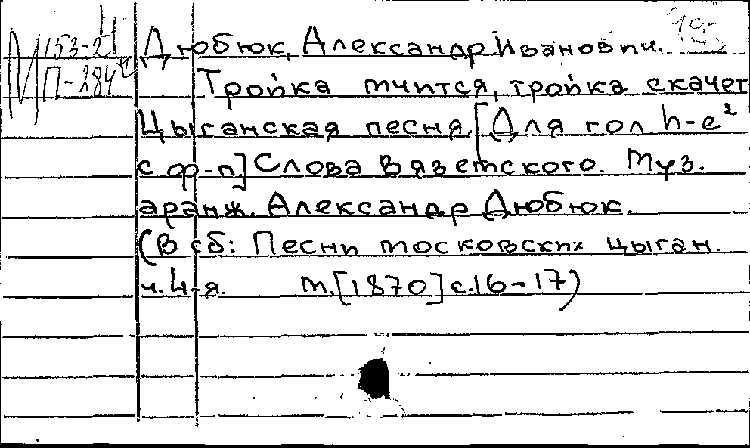 М 153-21
П-284
Дюбюк, Александр Иванович.
Тройка мчится, тройка скачет
Цыганская песня. [Для гол h-e²
с ф-п] Слова Вяземского. Муз.
аранж. Александр Дюбюк.
(В сб: Песни московских цыган.
ч. 4-я. М. [1870] с.16-17)